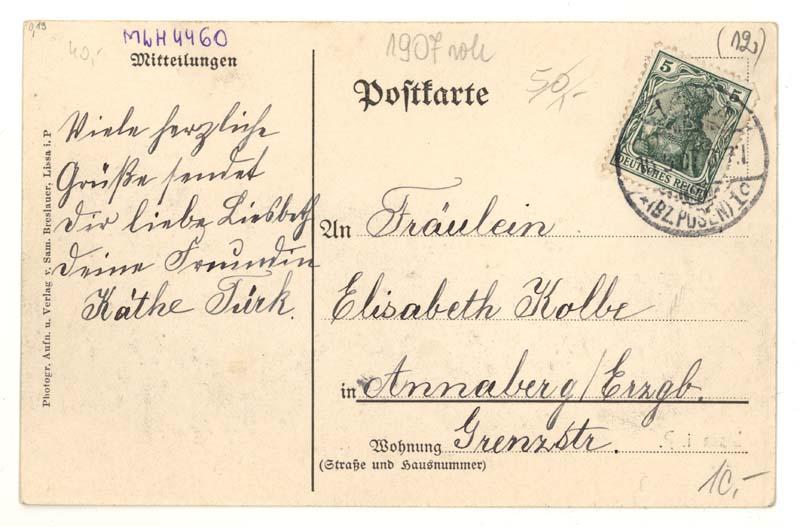 0,19
40,-
MWH4460
1907 rok
(12,)
Mitteilungen
Postkarte
50,-
5 5
DEUTSCHES REICH
*(BZ POSEN)1c
Viele herzliche
Grüße sendet
Dir liebe Liesbeth
Deine Freundin
Käthe Türk.
An Fräulein
Elisabeth Kolbe
in Annaberg/Erzgb.
Wohnung Grenzstr.
(Straße und Hausnummer)
10,-
Photogr. Aufn. u. Verlag v. Sam. Breslauer, Lissa i. P